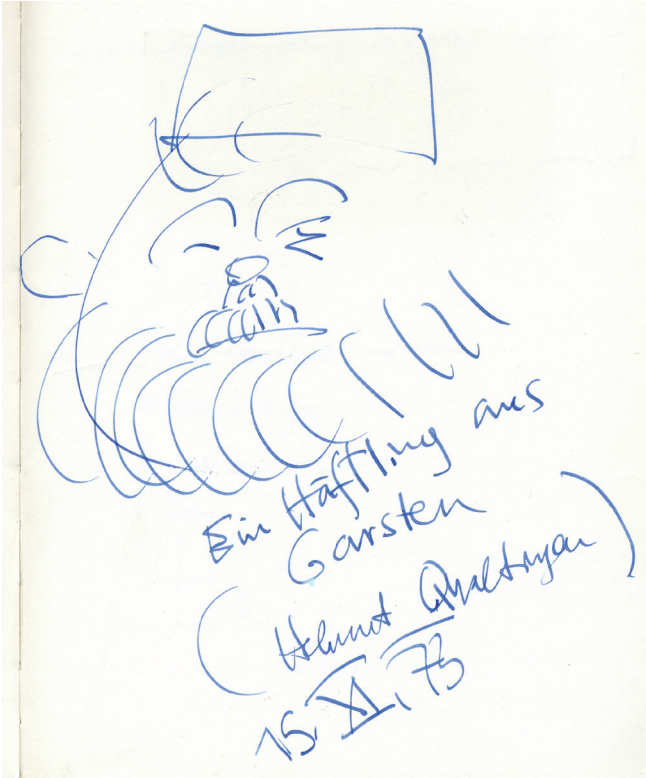 Ein Häftling aus
Garsten
(Helmut Qualtinger)
15. XI. 73